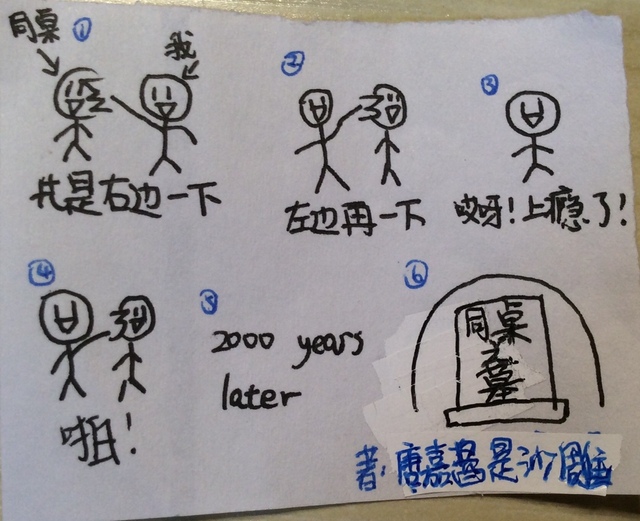 同桌
①
我
②
③
先是右边一下
左边再一下
哎呀!上瘾了!
④
啪!
⑤
2000 years
later
⑥
同桌
之墓
著:唐嘉
是沙雕